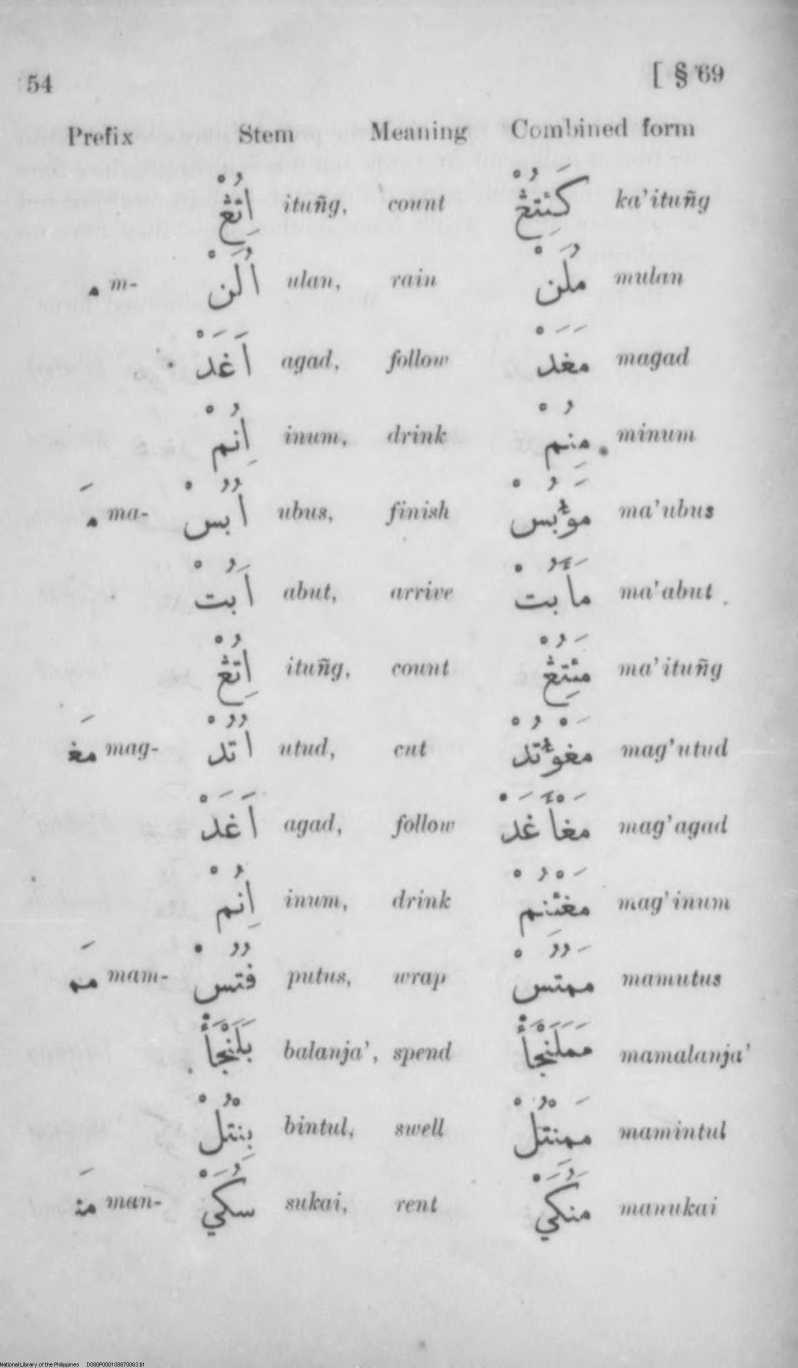 54 [ § 69
Prefix Stem Meaning Combined form
اِتُڠْ ituñg, count كَئِتُڠْ ka'ituñg
م m- اُلَنْ ulan, rain مُلَنْ mulan
اَغَدْ agad, follow مَغَدْ magad
اِنُمْ inum, drink مِنُمْ minum
مَ ma- اُبُسْ ubus, finish مَؤُبُسْ ma'ubus
اَبُتْ abut, arrive مَاَبُتْ ma'abut
اِتُڠْ ituñg, count مَئِتُڠْ ma'ituñg
مَغ mag- اُتُدْ utud, cut مَغْؤُتُدْ mag'utud
اَغَدْ agad, follow مَغْأَغَدْ mag'agad
اِنُمْ inum, drink مَغْئِنُمْ mag'inum
مَم mam- فُتُسْ putus, wrap مَمُتُسْ mamutus
بَلَنْجَأْ balanja', spend مَمَلَنْجَأْ mamalanja'
بِنْتُلْ bintul, swell مَمِنْتُلْ mamintul
مَن man- سُكَيْ sukai, rent مَنُكَيْ manukai
National Library of the Philippines